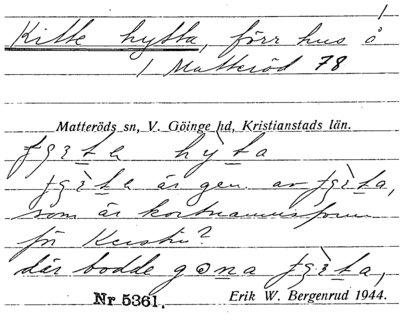 1
Kitte hytta, förr hus å
1 Matteröd 78
Matteröds sn, V. Göinge hd, Kristianstads län.
hỳta
är gen. av
som är kortnamnsform
för Kerstin?
där bodde gona
Nr 5361. Erik W. Bergenrud 1944.